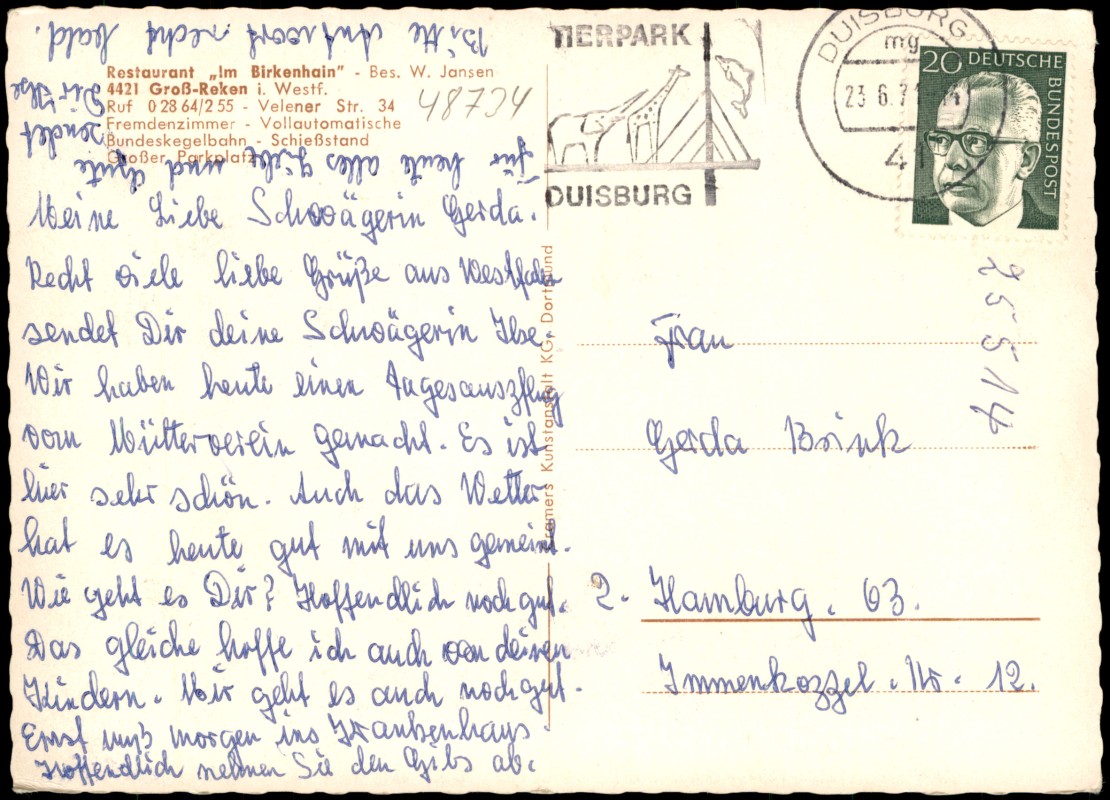 Restaurant „Im Birkenhain" - Bes. W. Jansen
4421 Groß-Reken i. Westf.
Ruf 0 28 64/2 55 - Velener Str. 34
Fremdenzimmer - Vollautomatische
Bundeskegelbahn - Schießstand
Großer Parkplatz
48734
Meine Liebe Schwägerin Gerda.
Recht viele liebe Grüße aus Westfalen
sendet Dir deine Schwägerin Ilse.
Wir haben heute einen Tagesauszflug
vom Mütterverein gemacht. Es ist
hier sehr schön. Auch das Wetter
hat es heute gut mit uns gemeint.
Wie geht es Dir? Hoffendlich noch gut.
Das gleiche hoffe ich auch von deinen
Kindern. Mir geht es auch noch gut.
Ernst muß morgen ins Krankenhaus.
Hoffendlich nehmen Sie den Gibs ab.
Für heute alles Liebe und Gute
sendet Dir Ilse
Bitte Antwort recht bald.
Cramers Kunstanstalt KG, Dortmund
TIERPARK
DUISBURG
DUISBURG
mg
23.6.71
4
20 DEUTSCHE
BUNDESPOST
25514
Frau
Gerda Brink
2. Hamburg. 63.
Immenkozzel. Nr. 12.